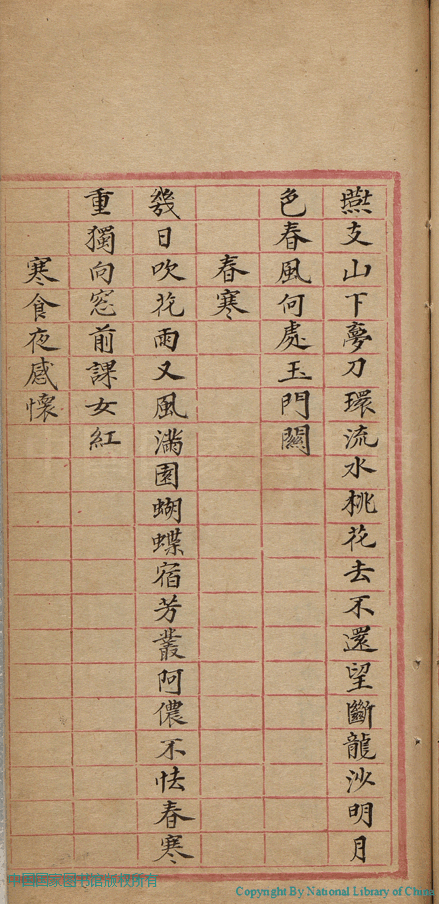 燕支山下夢刀環流水桃花去不還望斷龍沙明月
色春風何處玉門關
春寒
幾日吹花雨又風滿園蝴蝶宿芳叢阿儂不怯春寒
重獨向窓前課女紅
寒食夜感懷
中国国家图书馆版权所有
Copyright By National Library of China